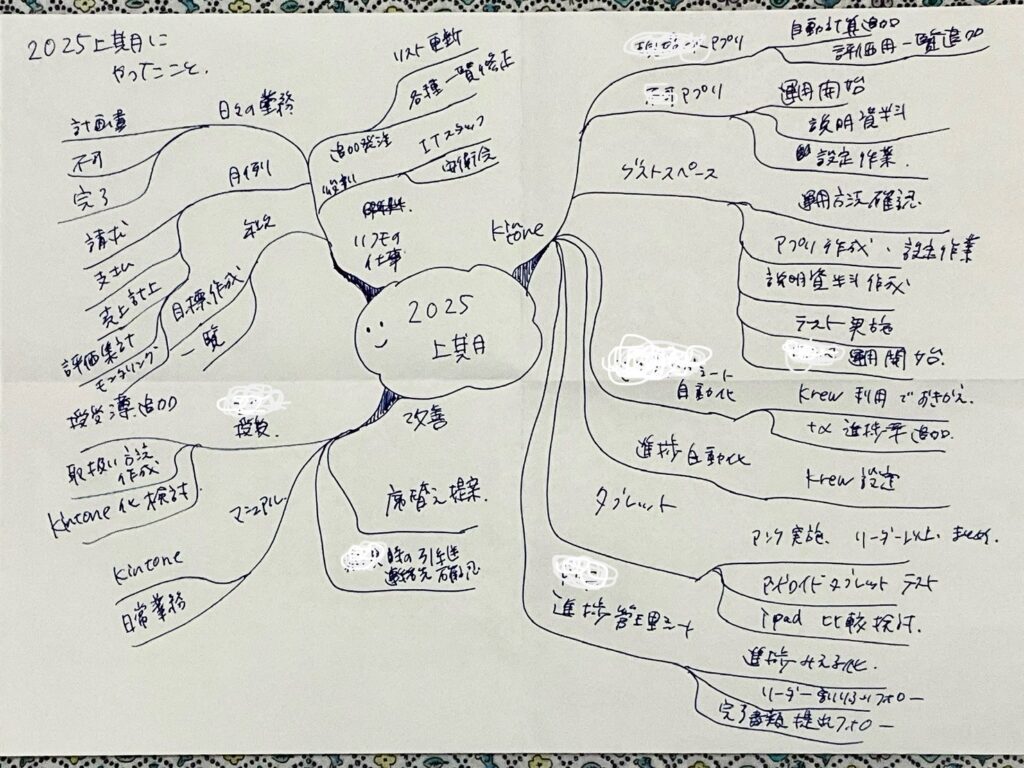 2025上期に
やったこと.
2025
上期
日々の業務
計画書
不可
完了
月例
請求
支払
売上計上
評価集計
モニタリング
年次
目標作成
一覧
いつもの
仕事
リスト更新
各種一覧修正
追加発注
ITスタッフ
安衛会
役割
改善
授受簿追加
取扱い方法
作成
kintone化検討
マニュアル.
kintone
日常業務
席替え提案.
時の引継
連絡先確認
kintone
アプリ
自動計算追加
評価用一覧追加
アプリ
運用開始
説明資料
設定作業.
ゲストスペース
運用方法確認.
アプリ作成・設定作業
説明資料作成
テスト実施
運用開始.
シート
自動化
Krew利用でおきかえ.
+α 進捗率追加.
進捗自動化
Krew設定
タブレット
アンケ実施. リーダー以上. まとめ.
アンドロイドタブレット テスト
ipad 比較検討.
進捗管理シート
進捗みえる化.
フォロー
完了書類提出フォロー